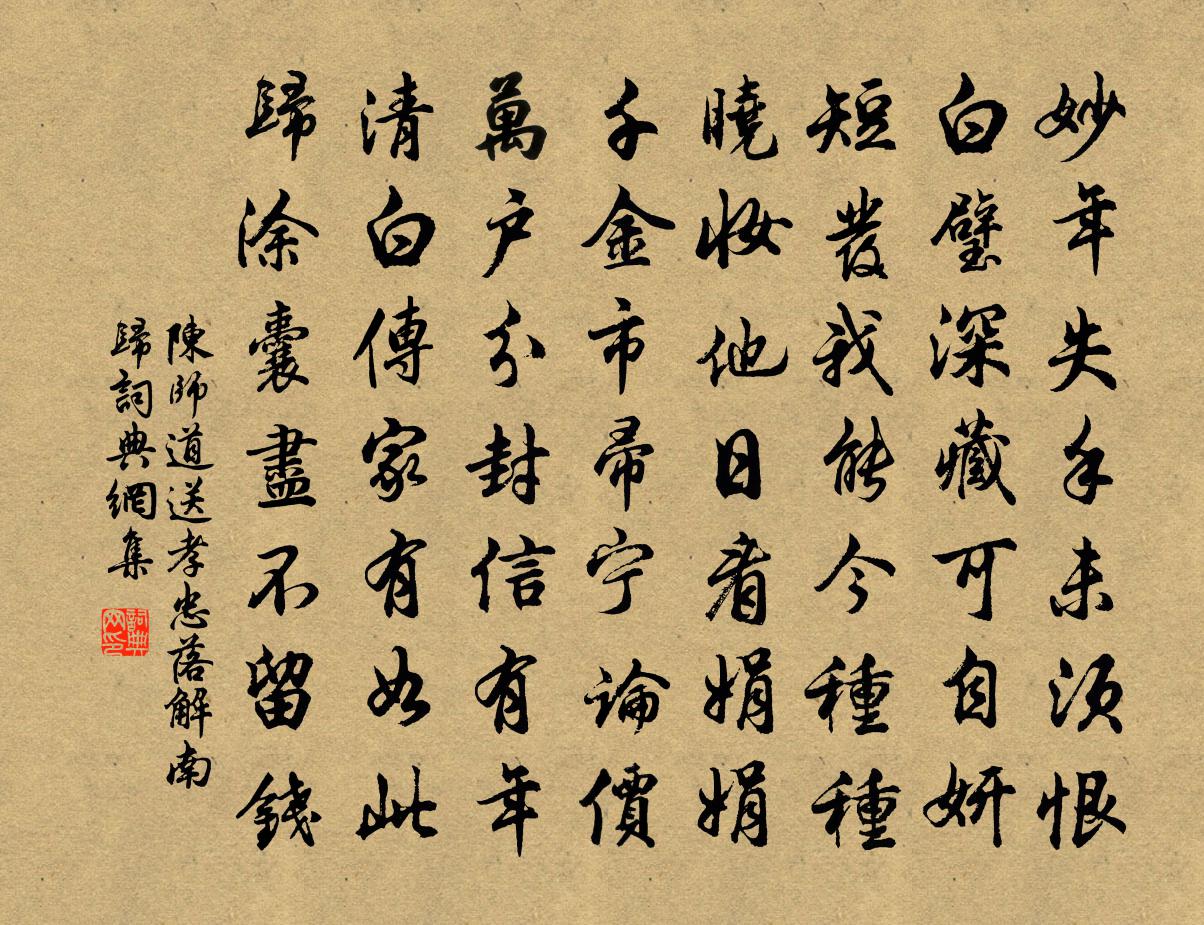 妙年失手未須恨
白璧深藏可自妍
短發我能今種種
曉妝他日看娟娟
千金市帚寧論價
萬户分封信有年
清白傳家有如此
歸涂囊盡不留錢
陳師道送孝忠落解南
歸詞典網集
詞典
网印